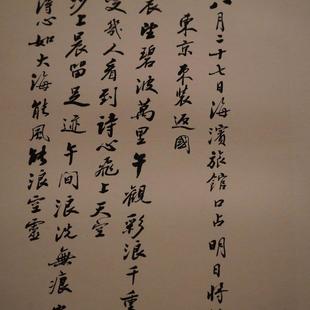 八月二十七日海濱旅館口占明日將
東京束裝返國
晨望碧波萬里午觀彩浪千重
幾人看到詩心飛上天空
沙上晨留足迹午間浪洗無痕
詩心如大海能風能浪空靈